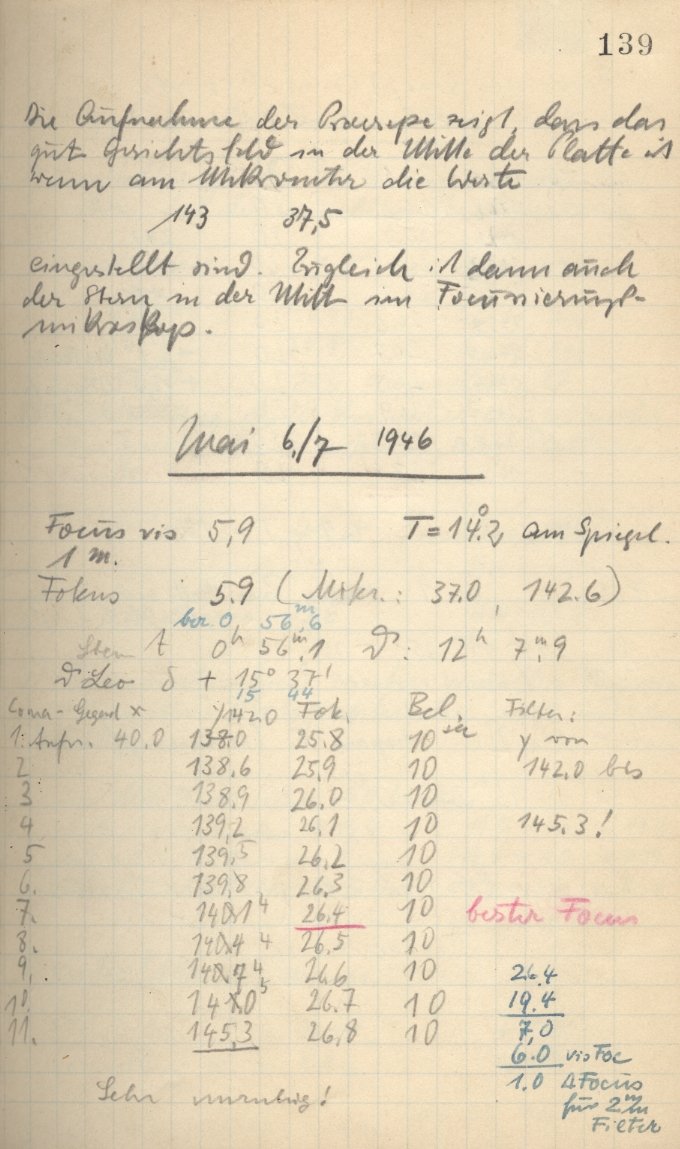 139
Die Aufnahme der Praesepe zeigt, dass das
gute Gesichtsfeld in der Mitte der Platte ist
wenn am Mikrometer die Werte
143 37,5
eingestellt sind. Zugleich ist dann auch
der Stern in der Mitte im Focusierungs-
mikroskop.
Mai 6./7 1946
Focus vis 5,9 T = 14°.2 am Spiegel.
1 m.
Fokus 5.9 (Mikr.: 37.0, 142.6)
ber. 0, 56m,6
Stern t 0h 56m.1 : 12h 7m.9
Leo δ + 15° 37'
15 44
Coma-Gegend x y 142.0 Fok. Bel. Filter:
1. Aufn. 40.0 138.0 25.8 10 sec y von
2 138.6 25.9 10 142.0 bis
3 138.9 26.0 10
4 139,2 26,1 10 145.3!
5 139,5 26.2 10
6. 139,8 26.3 10
7. 140.1 4 26.4 10 bester Focus
8. 140.4 4 26.5 10
9. 140.7 4 26.6 10 26.4
10. 141.0 5 26.7 10 19.4
11. 145,3 26,8 10 7,0
6.0 vis Foc
Sehr unruhig! 1.0 Δ Focus
für 2 mm
Filter